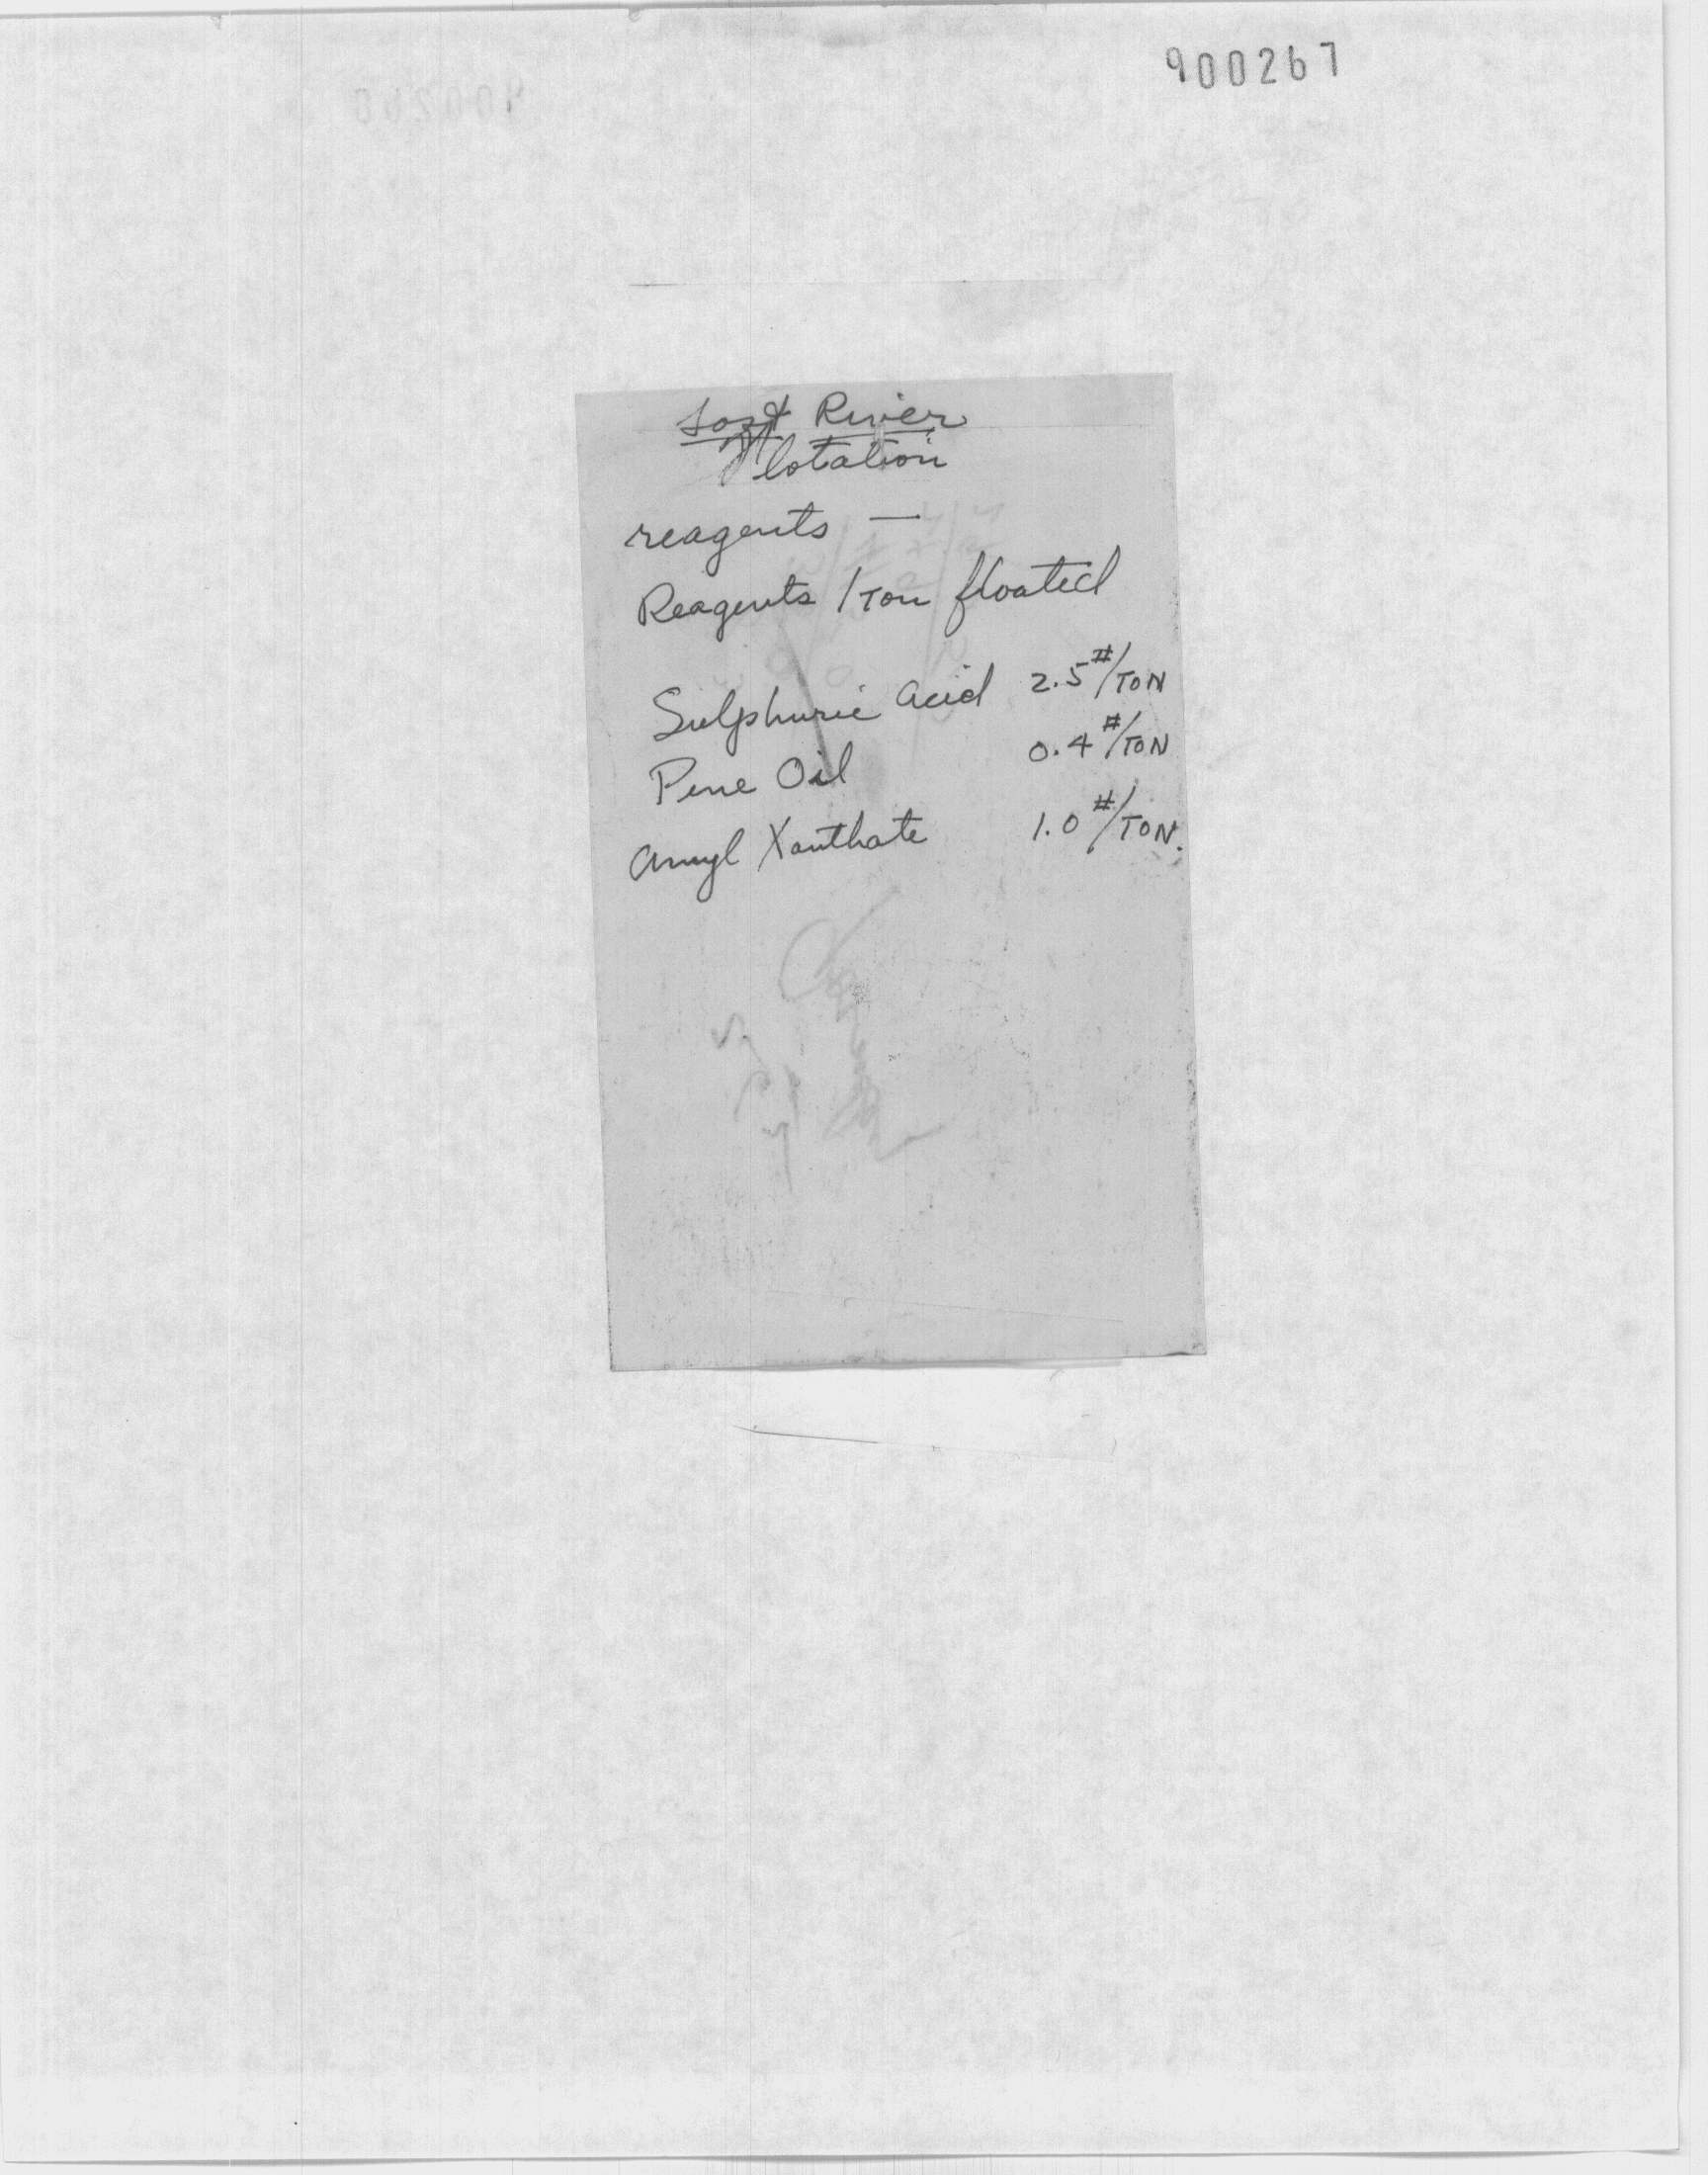 900267
Lost River
Flotation
reagents —
Reagents / Ton floated
Sulphuric acid 2.5 #/TON
Pine Oil 0.4 #/TON
Amyl Xanthate 1.0 #/TON.